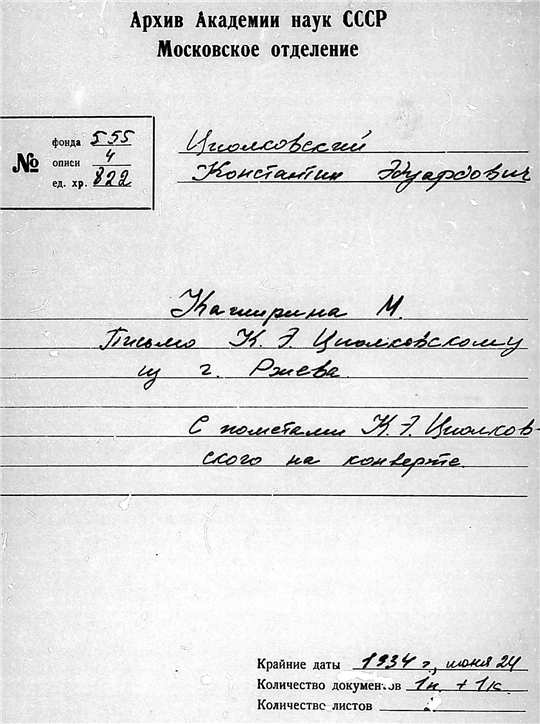 Архив Академии наук СССР
Московское отделение
№
фонда 555
описи 4
ед. хр. 822
Циолковский
Константин Эдуардович
Каширина М.
Письмо К. Э. Циолковскому
из г. Ржева.
С пометами К. Э. Циолков-
ского на конверте.
Крайние даты 1934 г., июня 24
Количество документов 1п. + 1к.
Количество листов